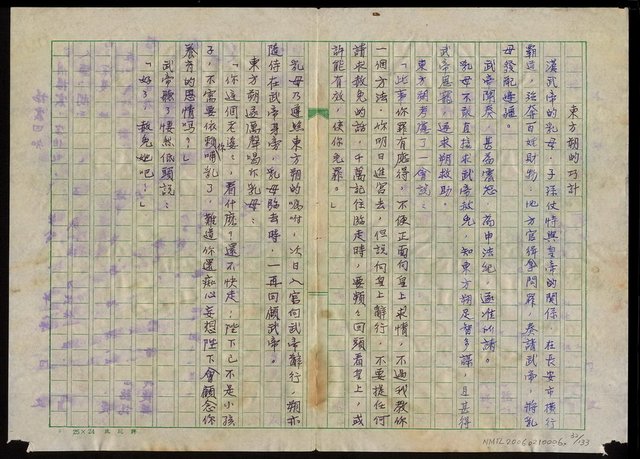 東方朔的巧計
漢武帝的乳母，子孫仗恃與皇帝的關係，在長安市橫行
霸道，強奪百姓財物，地方官緝拿問罪，奏請武帝，將乳
母發配邊疆。
武帝閱奏，甚為震怒，為申法紀，遂准所請。
乳母不敢直接求武帝赦免，知東方朔足智多謀，且甚得
武帝恩寵，遂求朔救助。
東方朔考慮了一會說：
「此事你罪有應得，不便正面向皇上求情，不過我教你
一個方法，你明日進宮去，但說向皇上辭行，不要提任何
請求赦免的話，千萬記住臨走時，要頻々回頭看皇上，或
許能有放，使你免罪。」
乳母乃遵照東方朔的囑咐，次日入宮向武帝辭行，朔亦
陵侍在武帝身旁，乳母臨去時，一再回顧武帝。
東方朔遂厲聲喝斥乳母：
「你這個老遠，看什麼？還不快走；陛下已不是小孩
子，不需要依賴你哺乳了，難道你還痴心妄想陛下會顧念你
養育的恩情嗎？」
武帝聽了悽然低頭說：
「好了，赦免她吧！」
25×24
NMTL20060210006
32/133